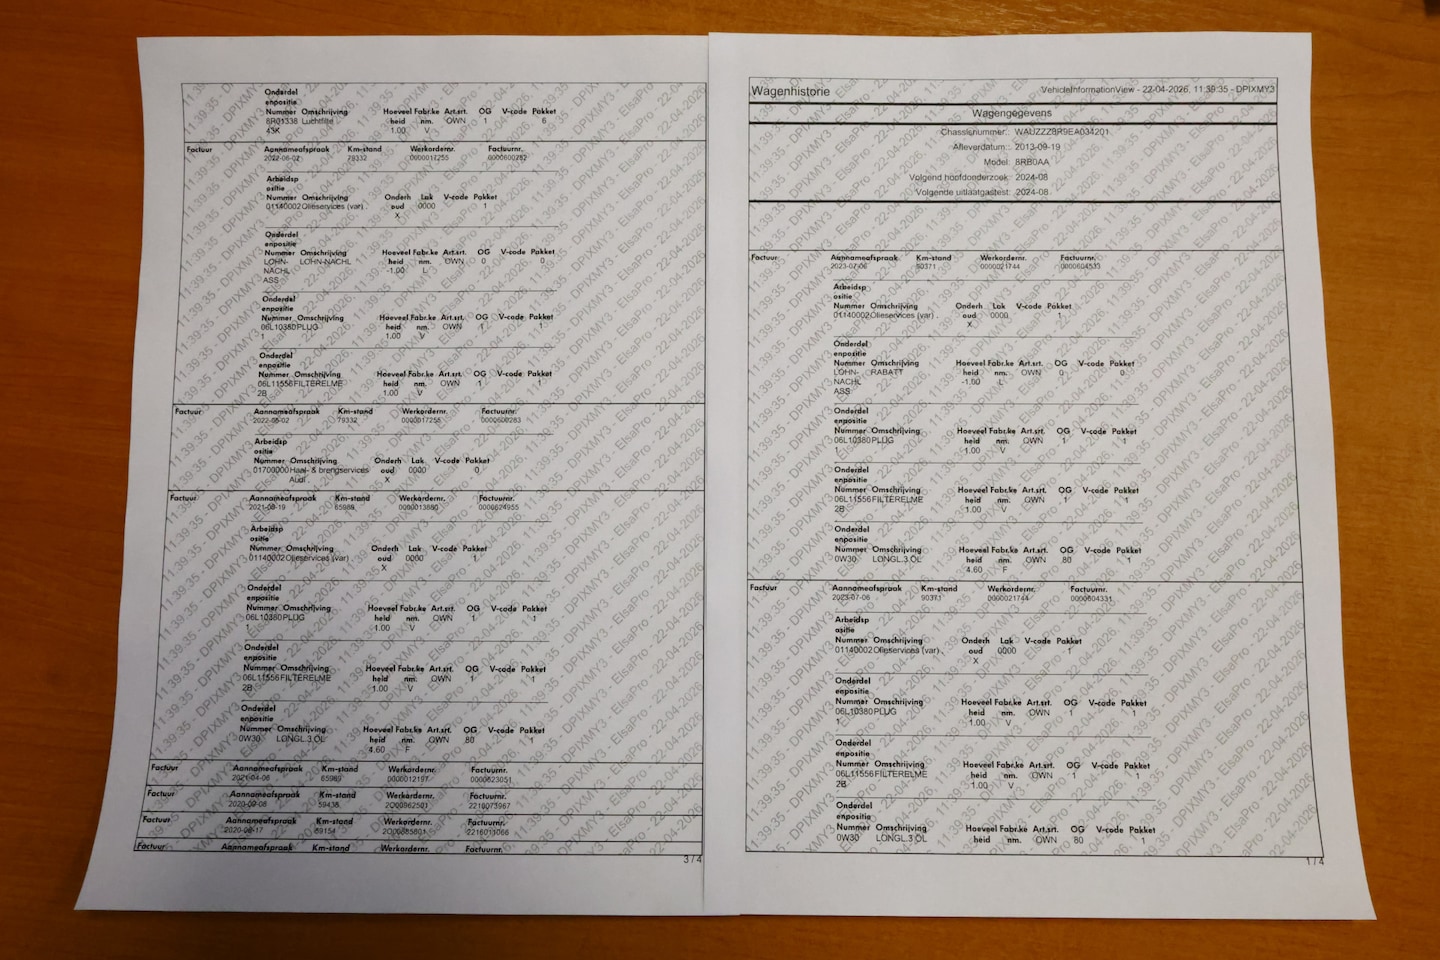 Onderdel
enpositie
Nummer Omschrijving Hoeveel Fabr.ke Art.srt. OG V-code Pakket
8R01338 Luchtfilte heid nm. OWN 1 6
43K 1.00 V
Factuur Aannameafspraak Km-stand Werkordernr. Factuurnr.
2022-06-02 79332 0000017255
Arbeidsp
ositie
Nummer Omschrijving Onderh Lak V-code Pakket
01140002 Olieservices (var) . oud 0000 1
X
Onderdel
enpositie
Nummer Omschrijving Hoeveel Fabr.ke Art.srt. OG V-code Pakket
LOHN- LOHN-NACHL heid nm. OWN 0 0
NACHL -1.00 L
ASS
Onderdel
enpositie
Nummer Omschrijving Hoeveel Fabr.ke Art.srt. OG V-code Pakket
06L10380 PLUG heid nm. OWN 1 1
1 1.00 V
Onderdel
enpositie
Nummer Omschrijving Hoeveel Fabr.ke Art.srt. OG V-code Pakket
06L11556 FILTERELME heid nm. OWN 1 1
2B 1.00 V
Factuur Aannameafspraak Km-stand Werkordernr. Factuurnr.
2022-06-02 79332 0000017255 0000600263
Arbeidsp
ositie
Nummer Omschrijving Onderh Lak V-code Pakket
01700000 Haal- & brengservices oud 0000 0
Audi X
Factuur Aannameafspraak Km-stand Werkordernr. Factuurnr.
2021-08-19 65989 0000013880 0000624955
Arbeidsp
ositie
Nummer Omschrijving Onderh Lak V-code Pakket
01140002 Olieservices (var) . oud 0000 1
X
Onderdel
enpositie
Nummer Omschrijving Hoeveel Fabr.ke Art.srt. OG V-code Pakket
06L10380 PLUG heid nm. OWN 1 1
1 1.00 V
Onderdel
enpositie
Nummer Omschrijving Hoeveel Fabr.ke Art.srt. OG V-code Pakket
06L11556 FILTERELME heid nm. OWN 1 1
2B 1.00 V
Onderdel
enpositie
Nummer Omschrijving Hoeveel Fabr.ke Art.srt. OG V-code Pakket
0W30 LONGL.3 OL heid nm. OWN 80 1
4.60 F
Factuur Aannameafspraak Km-stand Werkordernr. Factuurnr.
2021-04-06 65989 0000012197 0000623051
Factuur Aannameafspraak Km-stand Werkordernr. Factuurnr.
2020-09-08 59438 2O00862501 2216073967
Factuur Aannameafspraak Km-stand Werkordernr. Factuurnr.
2020-08-17 59154 2O00855801 2216011066
Factuur Aannameafspraak Km-stand Werkordernr. Factuurnr.
3 / 4
Wagenhistorie VehicleInformationView - 22-04-2026, 11:39:35 - DPIXMY3
Wagengegevens
Chassisnummer:: WAUZZZ8R9EA034201
Afleverdatum:: 2013-09-19
Model: 8RB0AA
Volgend hoofdonderzoek: 2024-08
Volgende uitlaatgastest: 2024-08
Factuur Aannameafspraak Km-stand Werkordernr. Factuurnr.
2023-07-06 90371 0000021744 0000604533
Arbeidsp
ositie
Nummer Omschrijving Onderh Lak V-code Pakket
01140002 Olieservices (var) . oud 0000 1
X
Onderdel
enpositie
Nummer Omschrijving Hoeveel Fabr.ke Art.srt. OG V-code Pakket
LOHN- RABATT heid nm. OWN 0 0
NACHL -1.00 L
ASS
Onderdel
enpositie
Nummer Omschrijving Hoeveel Fabr.ke Art.srt. OG V-code Pakket
06L10380 PLUG heid nm. OWN 1 1
1 1.00 V
Onderdel
enpositie
Nummer Omschrijving Hoeveel Fabr.ke Art.srt. OG V-code Pakket
06L11556 FILTERELME heid nm. OWN 1 1
2B 1.00 V
Onderdel
enpositie
Nummer Omschrijving Hoeveel Fabr.ke Art.srt. OG V-code Pakket
0W30 LONGL.3 OL heid nm. OWN 80 1
4.60 F
Factuur Aannameafspraak Km-stand Werkordernr. Factuurnr.
2023-07-06 90371 0000021744 0000604331
Arbeidsp
ositie
Nummer Omschrijving Onderh Lak V-code Pakket
01140002 Olieservices (var) . oud 0000 1
X
Onderdel
enpositie
Nummer Omschrijving Hoeveel Fabr.ke Art.srt. OG V-code Pakket
06L10380 PLUG heid nm. OWN 1 1
1 1.00 V
Onderdel
enpositie
Nummer Omschrijving Hoeveel Fabr.ke Art.srt. OG V-code Pakket
06L11556 FILTERELME heid nm. OWN 1 1
2B 1.00 V
Onderdel
enpositie
Nummer Omschrijving Hoeveel Fabr.ke Art.srt. OG V-code Pakket
0W30 LONGL.3 OL heid nm. OWN 80 1
1 / 4